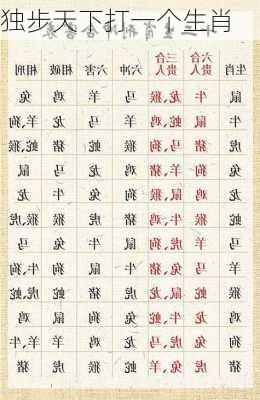 独步天下打一个生肖
生肖 六合贵人 三合贵人 六冲 六害 相破 相刑
鼠 牛 龙,猴 马 羊 鸡 兔
牛 鼠 蛇,鸡 羊 马 龙 羊,狗
虎 猪 马,狗 猴 蛇 猪 蛇,猴
兔 狗 羊,猪 鸡 龙 马 鼠
龙 鸡 鼠,猴 狗 兔 牛 龙
蛇 猴 牛,鸡 猪 虎 猴 猴,虎
马 羊 虎,狗 鼠 牛 兔 马
羊 马 兔,猪 牛 鼠 狗 狗,牛
猴 蛇 鼠,龙 虎 猪 蛇 蛇,虎
鸡 龙 牛,蛇 兔 狗 鼠 鸡
狗 兔 虎,马 龙 鸡 羊 羊,牛
猪 虎 兔,羊 蛇 猴 虎 猪